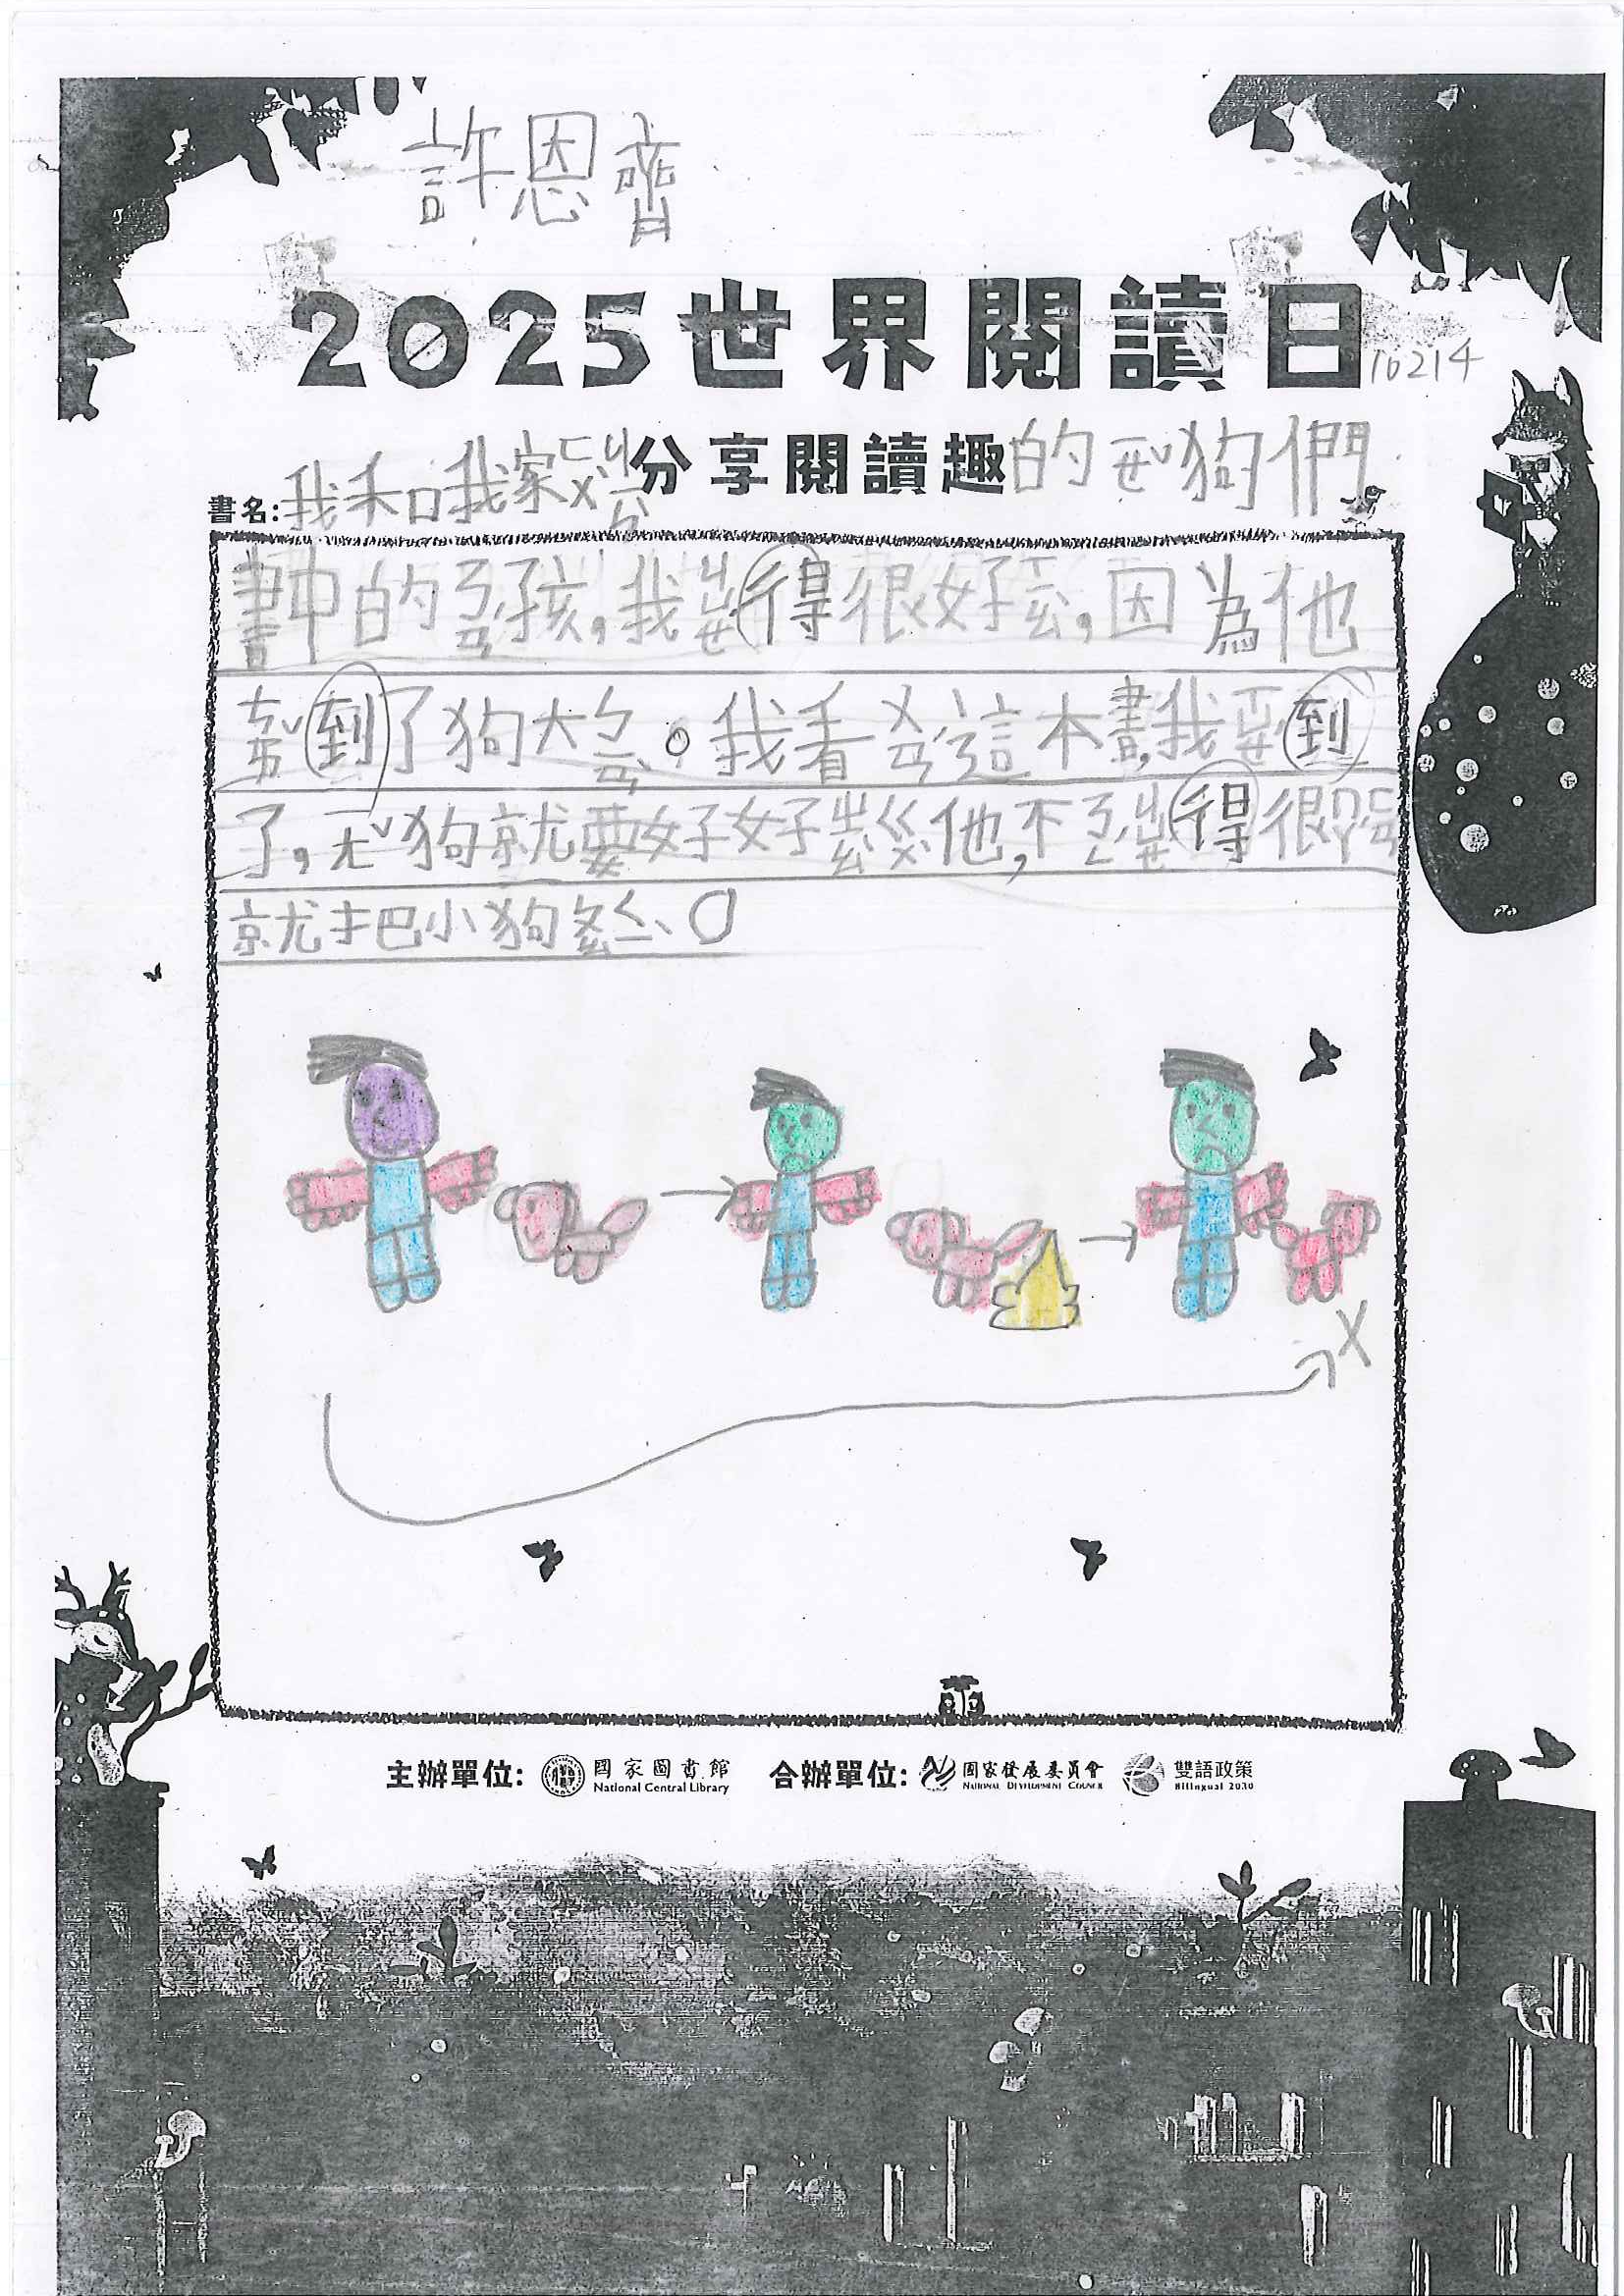 許恩齊
2025世界閱讀日
10214
分享閱讀趣
書名:我和我家ㄈㄨˋㄐㄧㄣˋ的ㄧㄝˇ狗們
書中的ㄋㄢˊ孩,我ㄐㄩㄝˊ得很好ㄒㄧㄠˋ,因為他
ㄘㄞˇ到了狗大ㄅㄧㄢˋ。我看ㄨㄢˊ這本書,我ㄒㄩㄝˊ到
了,ㄧㄤˇ狗就要好好ㄓㄠˋㄍㄨˋ他,不ㄋㄥˊㄐㄩㄝˊ得很
就把小狗ㄉㄧㄡㄑㄧˋ。
主辦單位:
國家圖書館
National Central Library
合辦單位:
國家發展委員會
National Development Council
雙語政策
Bilingual 2030